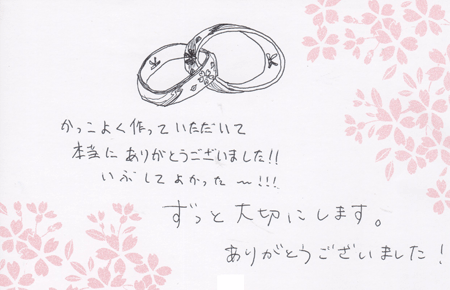 かっこよく作っていただいて
本当にありがとうございました!!
いぶしてよかった〜!!!
ずっと大切にします。
ありがとうございました!